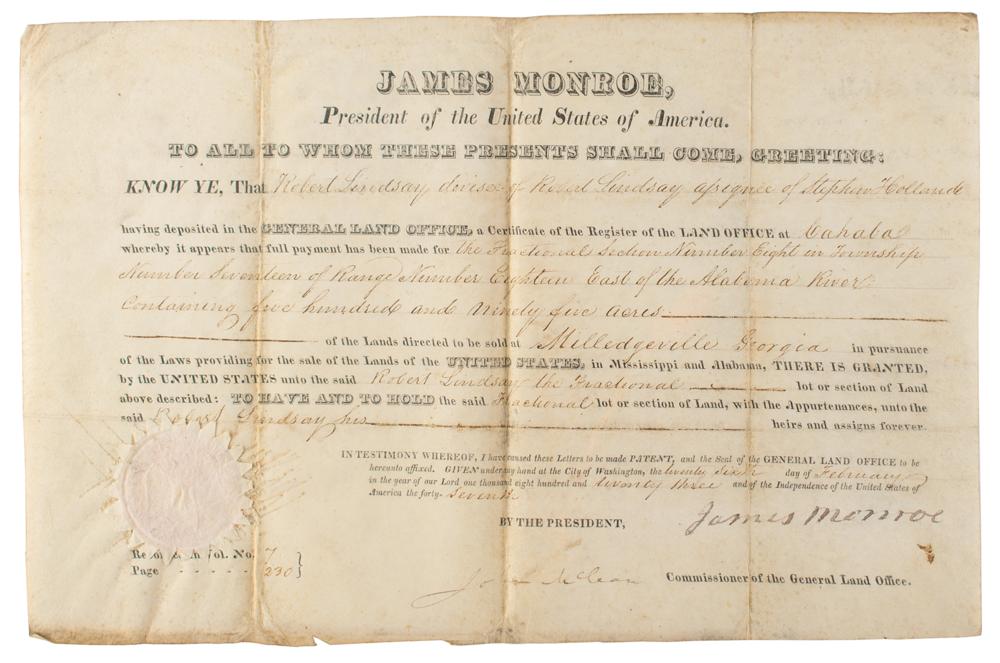 JAMES MONROE,
President of the United States of America.
TO ALL TO WHOM THESE PRESENTS SHALL COME, GREETING:
KNOW YE, That Robert Lindsay divisee of Robert Lindsay assignee of Stephen Hollande
having deposited in the GENERAL LAND OFFICE, a Certificate of the Register of the LAND OFFICE at Cahaba
whereby it appears that full payment has been made for the Fractional Section Number Eight in Township
Number Seventeen of Range Number Eighteen East of the Alabama River
Containing five hundred and ninety five acres
of the Lands directed to be sold at Milledgeville Georgia in pursuance
of the Laws providing for the sale of the Lands of the UNITED STATES, in Mississippi and Alabama, THERE IS GRANTED,
by the UNITED STATES unto the said Robert Lindsay the Fractional lot or section of Land
above described: TO HAVE AND TO HOLD the said Fractional lot or section of Land, with the Appurtenances, unto the
said Robert Lindsay his heirs and assigns forever.
IN TESTIMONY WHEREOF, I have caused these Letters to be made PATENT, and the Seal of the GENERAL LAND OFFICE to be
hereunto affixed. GIVEN under my hand at the City of Washington, the twenty sixth day of February
in the year of our Lord one thousand eight hundred and twenty three and of the Independence of the United States of
America the forty-seventh
BY THE PRESIDENT, James Monroe
Vol. No. 7
Page - - - - - 230 }
John McLean Commissioner of the General Land Office.